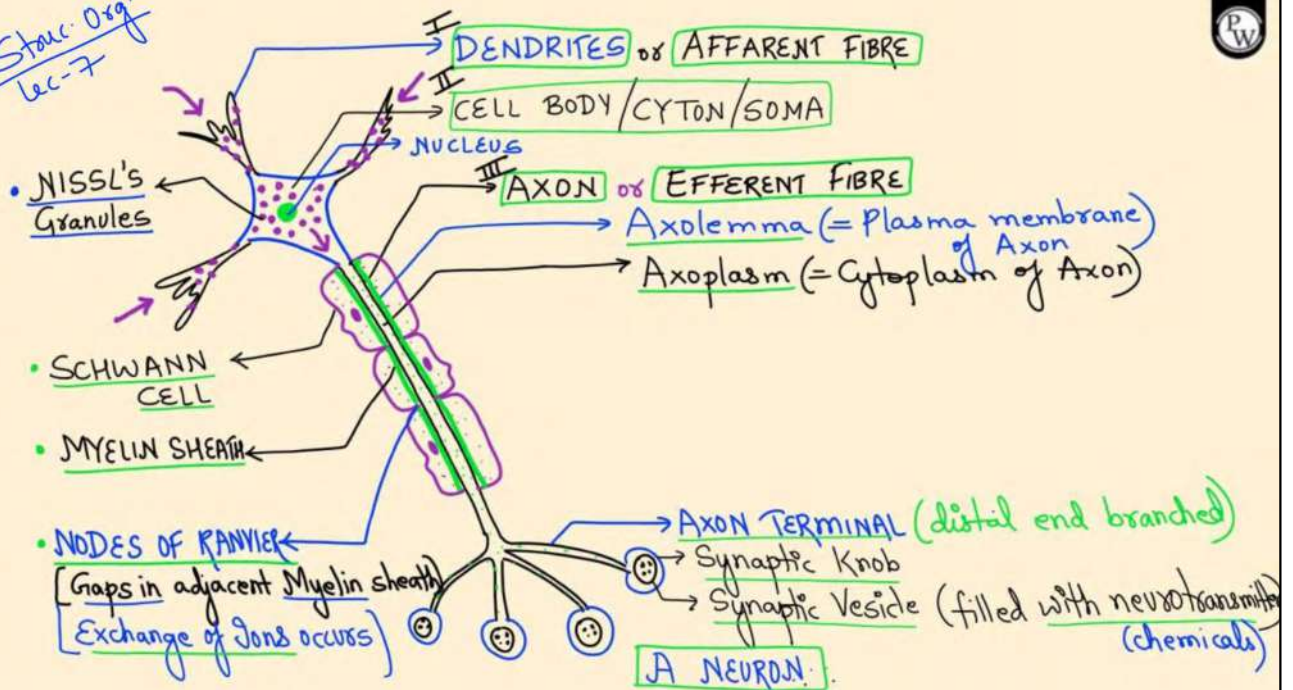 Struc. Org.
Lec-7
PW
I
DENDRITES or AFFARENT FIBRE
II
CELL BODY/CYTON/SOMA
NUCLEUS
III
AXON or EFFERENT FIBRE
• NISSL'S
Granules
Axolemma (= Plasma membrane
of Axon)
Axoplasm (= Cytoplasm of Axon)
• SCHWANN
CELL
• MYELIN SHEATH
• NODES OF RANVIER
[Gaps in adjacent Myelin sheath
Exchange of Ions occurs]
AXON TERMINAL (distal end branched)
Synaptic Knob
Synaptic Vesicle (filled with neurotransmitter
(chemicals)
A NEURON.